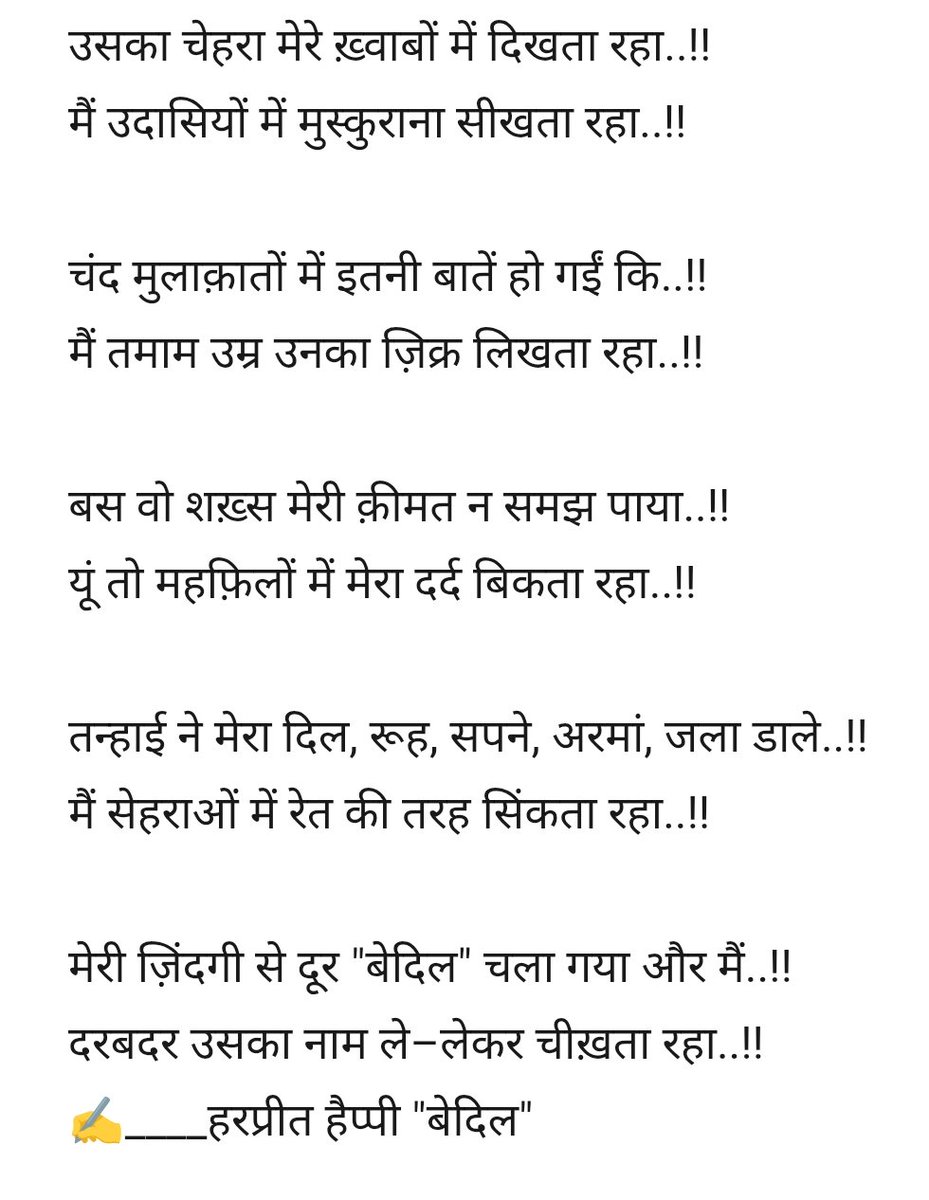 उसका चेहरा मेरे ख़्वाबों में दिखता रहा..!!
मैं उदासियों में मुस्कुराना सीखता रहा..!!
चंद मुलाक़ातों में इतनी बातें हो गईं कि..!!
मैं तमाम उम्र उनका ज़िक्र लिखता रहा..!!
बस वो शख़्स मेरी क़ीमत न समझ पाया..!!
यूं तो महफ़िलों में मेरा दर्द बिकता रहा..!!
तन्हाई ने मेरा दिल, रूह, सपने, अरमां, जला डाले..!!
मैं सेहराओं में रेत की तरह सिंकता रहा..!!
मेरी ज़िंदगी से दूर "बेदिल" चला गया और मैं..!!
दरबदर उसका नाम ले–लेकर चीख़ता रहा..!!
✍️____हरप्रीत हैप्पी "बेदिल"